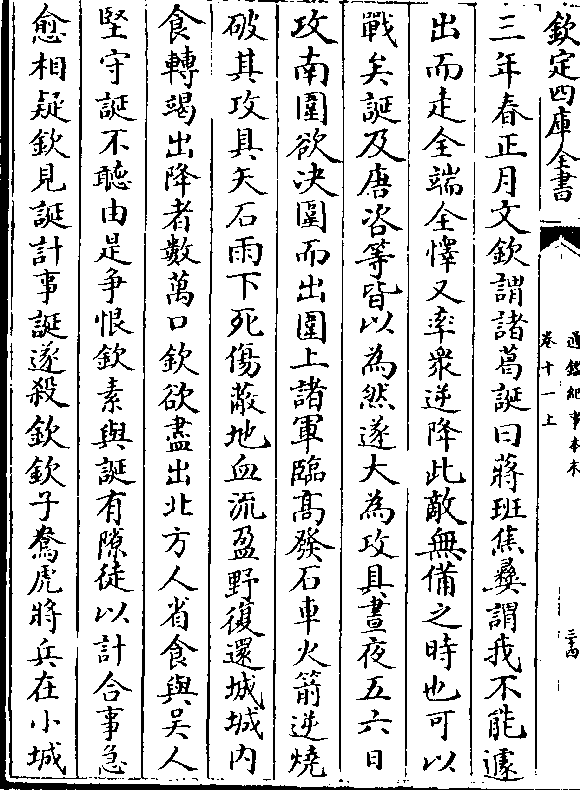 欽定四庫全書
通鑑紀事本末
卷十一上
三年春正月文欽謂諸葛誕曰蔣班焦彝謂我不能遽
出而走全端全懌又率衆逆降此敵無備之時也可以
戰矣誕及唐咨等皆以為然遂大為攻具晝夜五六日
攻南圍欲决圍而出圍上諸軍臨髙發石車火箭逆燒
破其攻具矢石雨下死傷蔽地血流盈野復還城城内
食轉竭出降者數萬口欽欲盡出北方人省食與吴人
堅守誕不聽由是争恨欽素與誕有隙徒以計合事急
愈相疑欽見誕計事誕遂殺欽欽子鴦虎將兵在小城